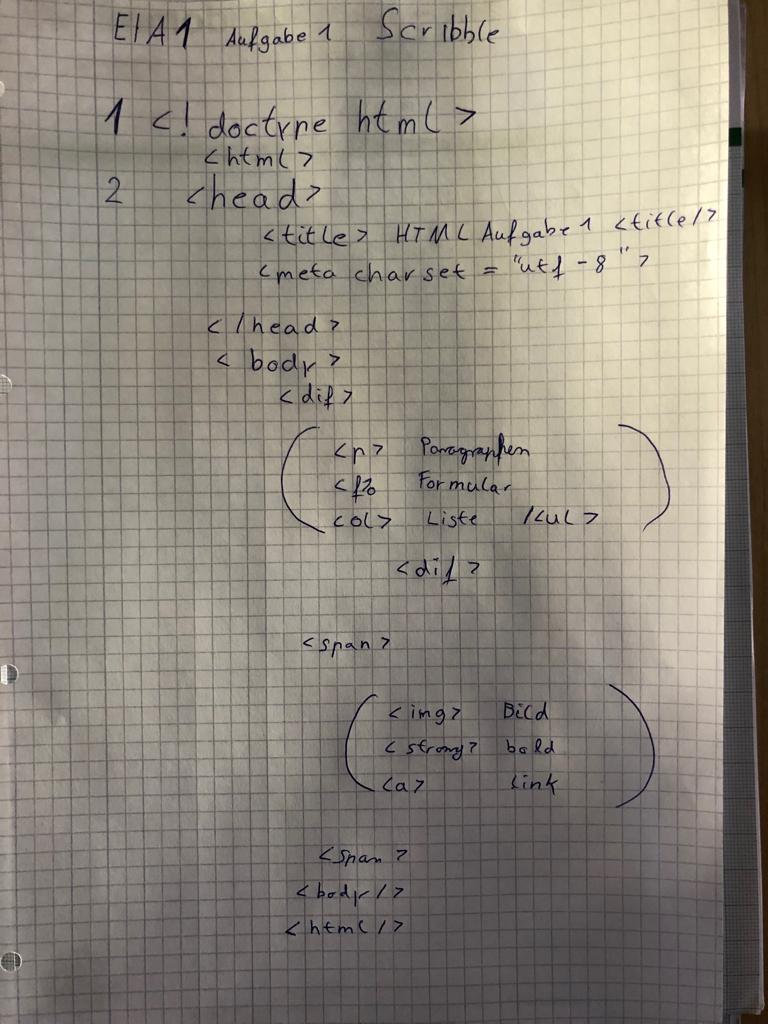 EIA1 Aufgabe 1 Scribble
1 <! doctype html>
<html>
2 <head>
<title> HTML Aufgabe 1 <title/>
<meta charset = "utf-8">
</head>
<body>
<dif>
<p> Paragraphen
Formular
<ol> Liste /<ul>
<dif>
<span>
<img> Bild
<strong> bold
<a> Link
<span>
<body/>
<html/>